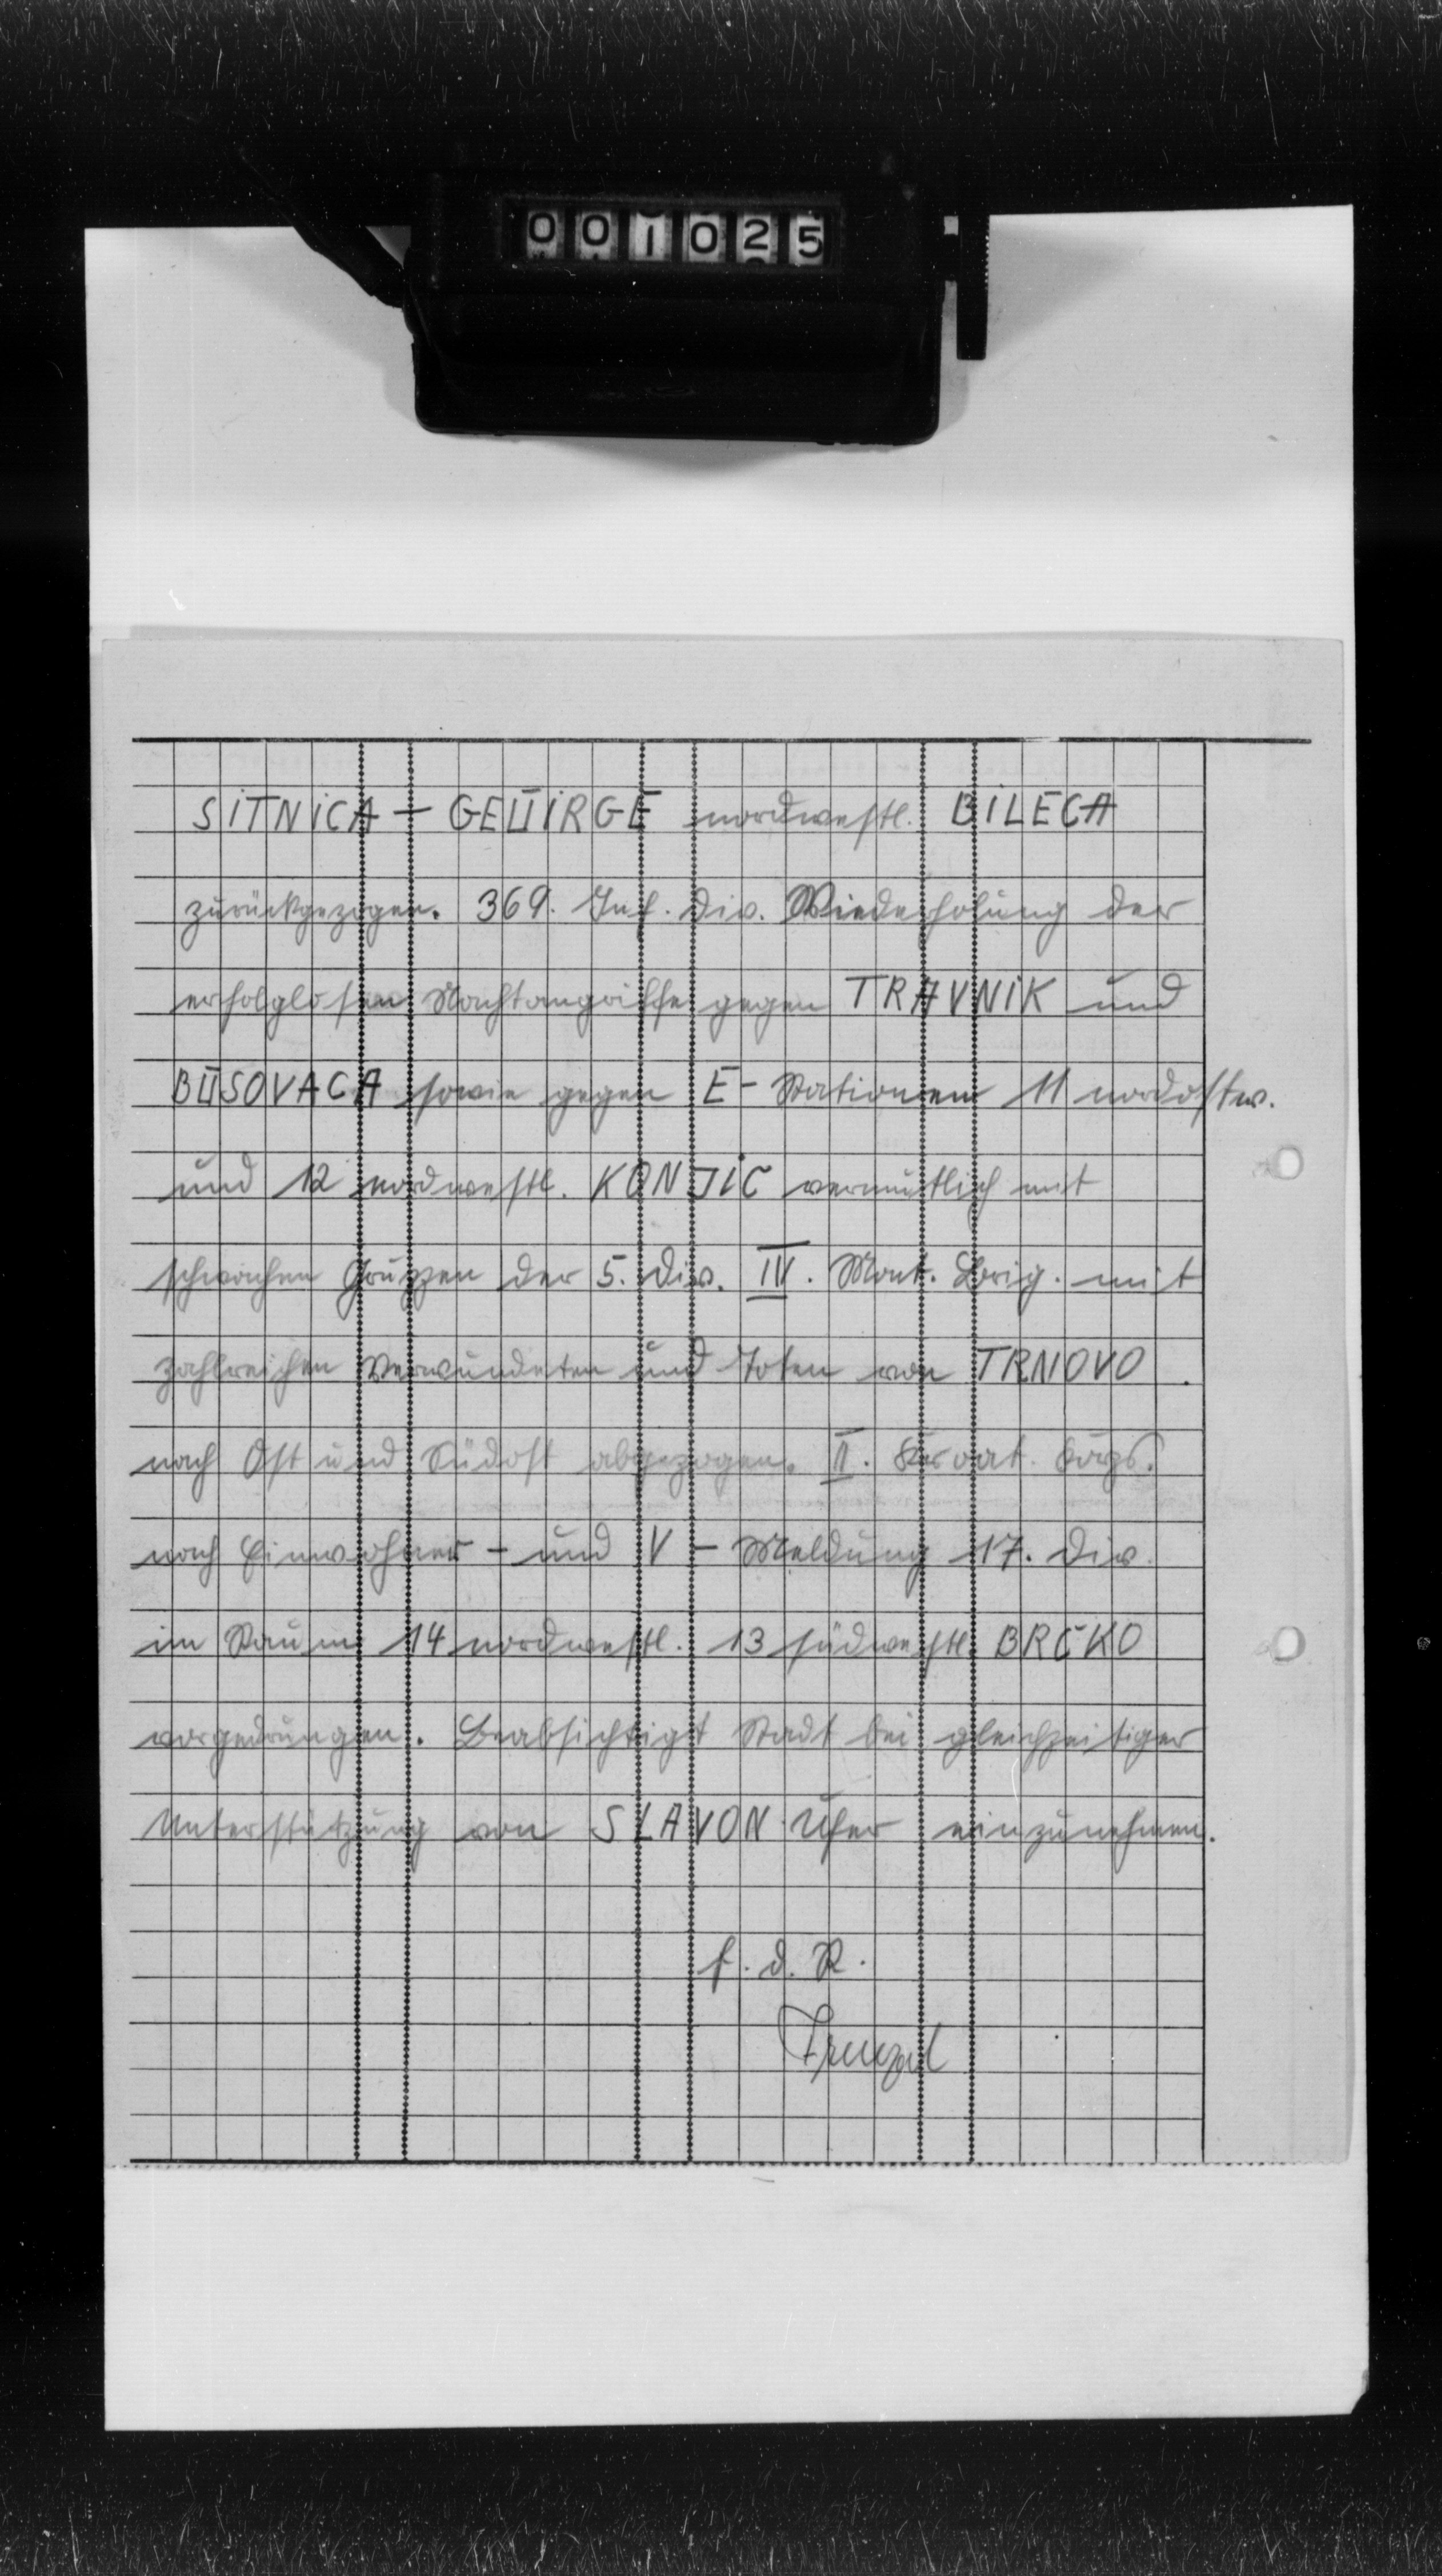 001025
SITNICA – GEBIRGE nordwestl. BILECA
zurückgezogen. 369. Inf. Div. Wiederholung der
erfolglosen Nachtangriffe gegen TRAVNIK und
BUSOVACA sowie gegen E-Stationen 11 nordostw.
und 12 nordwestl. KONJIC vermutlich mit
schwachen Gruppen der 5. Div. IV. Mont. Brig. mit
zahlreichen Verwundeten und Toten von TRNOVO
nach Ost und Südost abgezogen. II. Kroat. Korps.
nach Einwohner- und V-Meldung 17. Div.
im Raum 14 nordwestl. 13 südwestl. BRCKO
vorgedrungen. Beabsichtigt Stadt bei gleichzeitiger
Unterstützung von SLAVON. Ufer einzunehmen.
f. d. R.